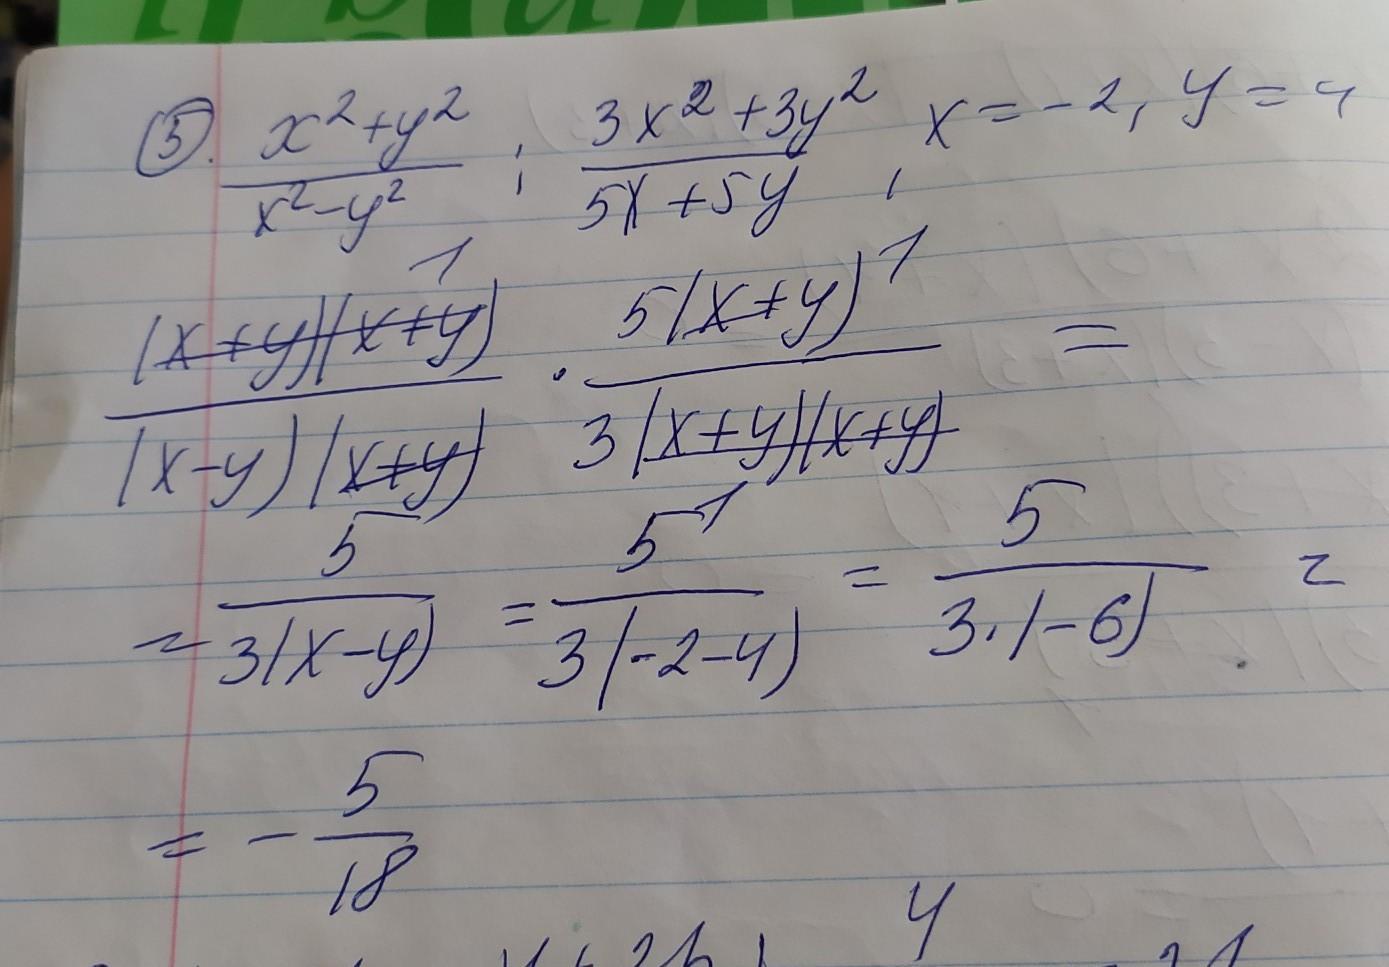 ⑤. (x²+y²)/(x²-y²) : (3x²+3y²)/(5x+5y), x=-2, y=4
((x+y)(x+y))/((x-y)(x+y)) 1 · (5(x+y))/(3(x+y)(x+y)) 1 =
= 5/(3(x-y)) = 5/(3(-2-4)) 1 = 5/(3·(-6)) =
= -5/18
4